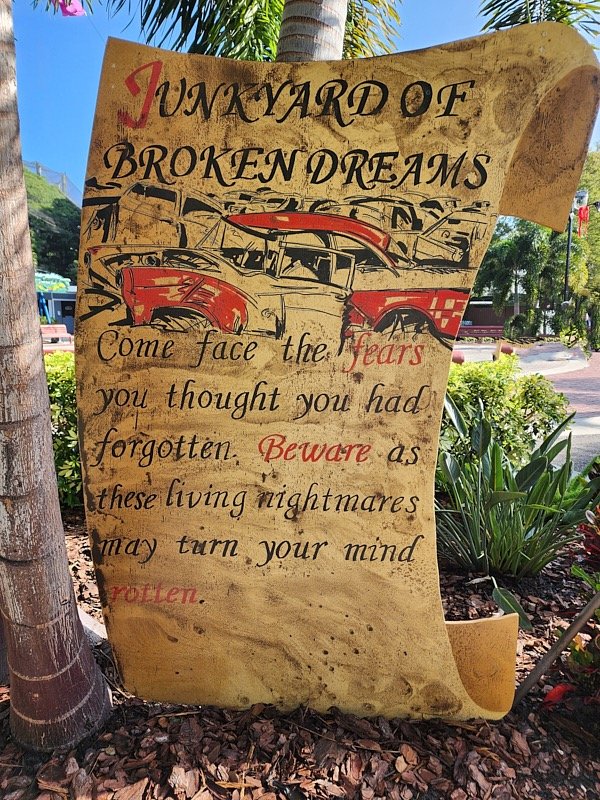 JUNKYARD OF
BROKEN DREAMS
Come face the fears
you thought you had
forgotten. Beware as
these living nightmares
may turn your mind
rotten.